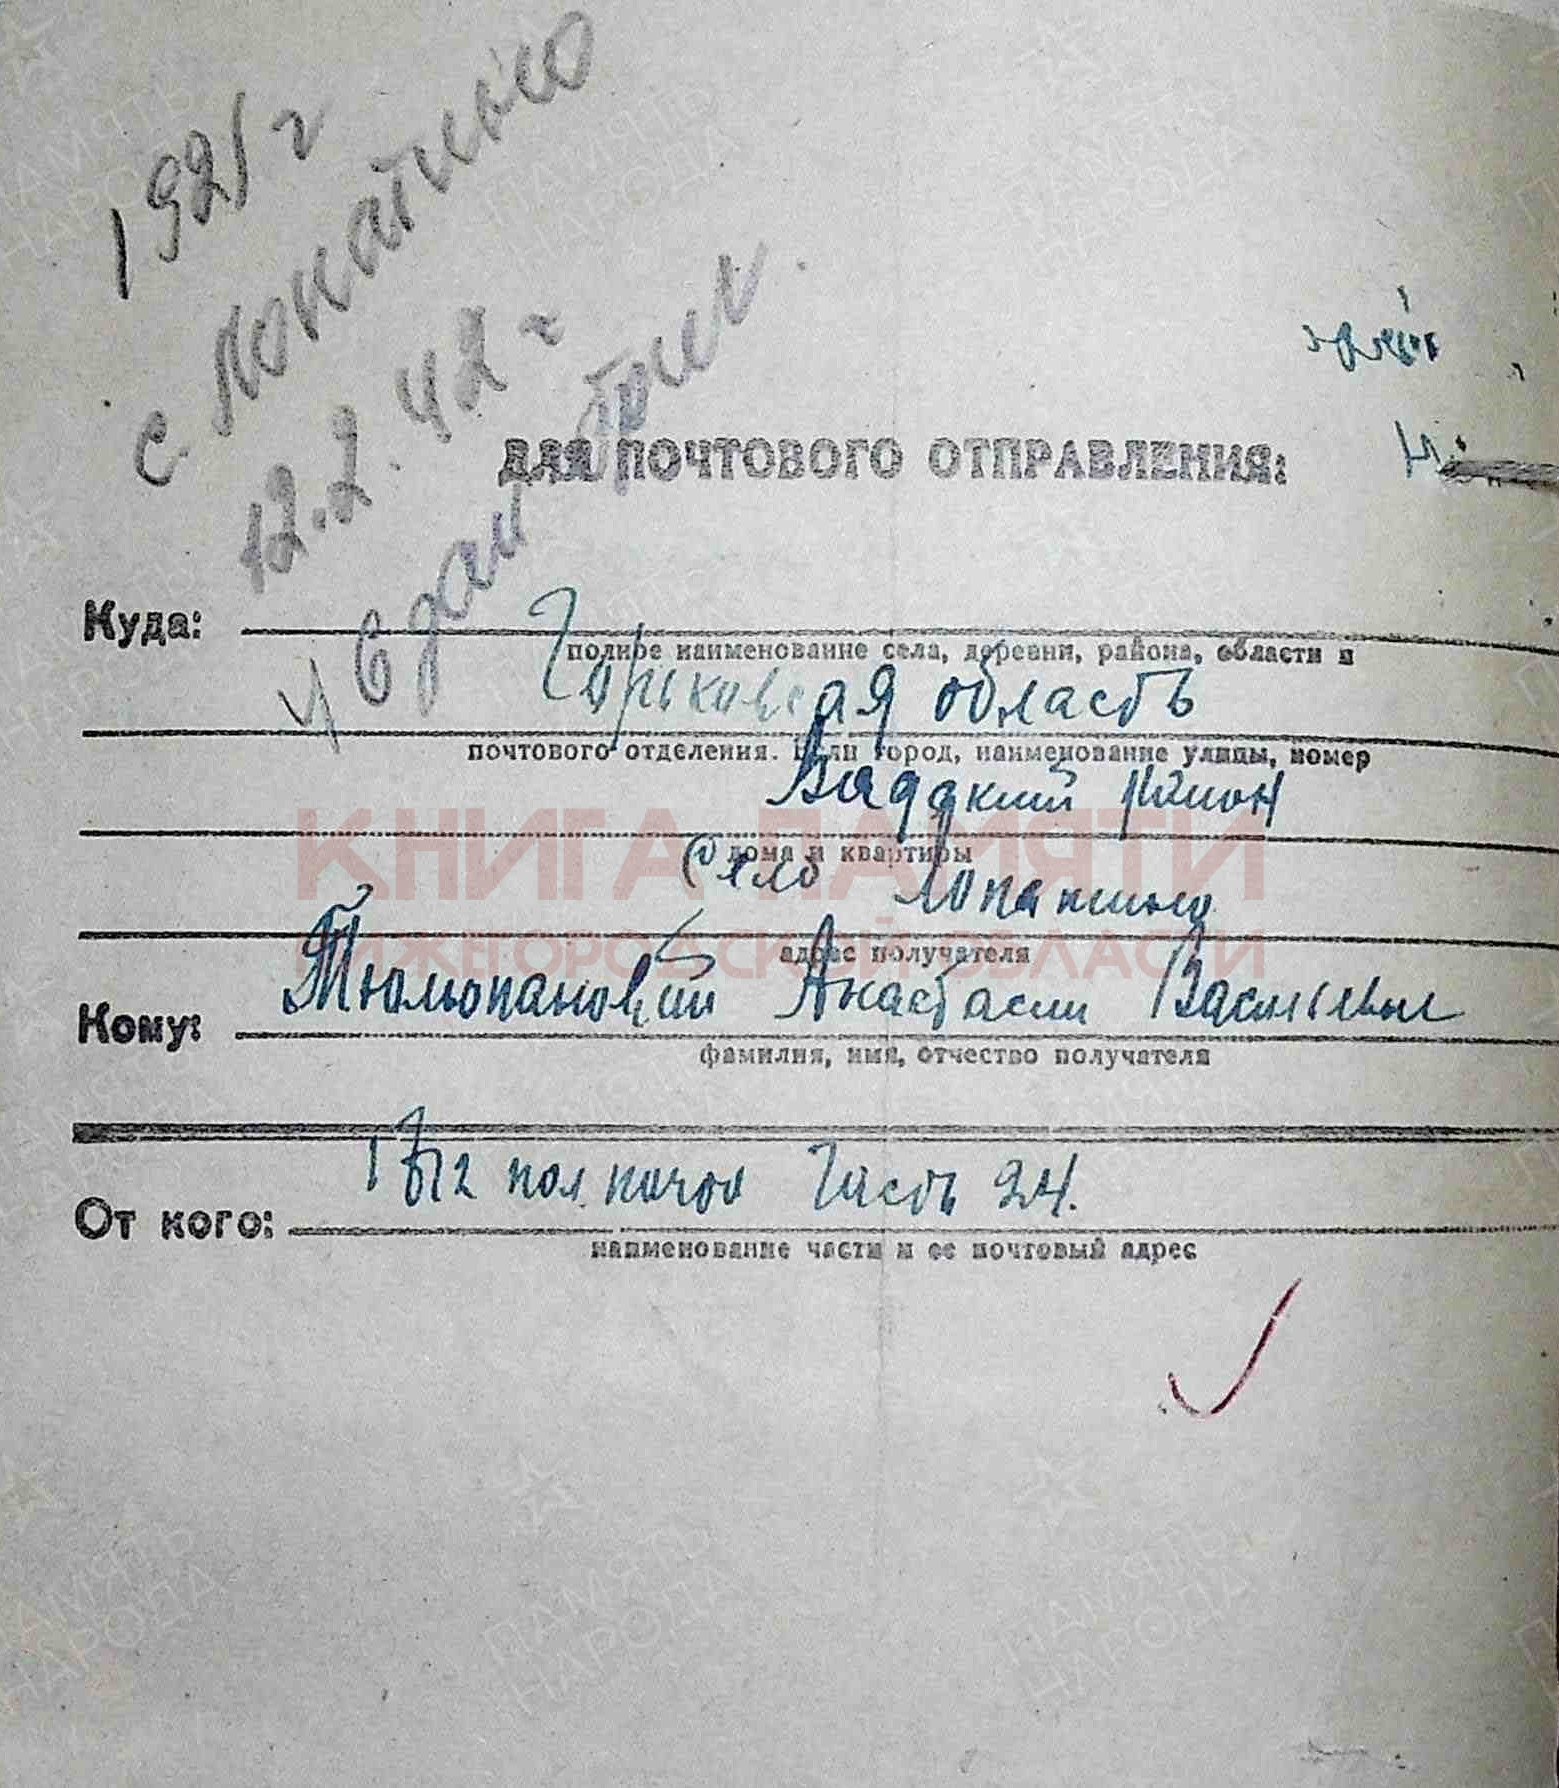 1921 г
с Лопатино
12.2.42 г
ч Сдан был.
ДЛЯ ПОЧТОВОГО ОТПРАВЛЕНИЯ:
Куда:
полное наименование села, деревни, района, области и
Горьковская область
почтового отделения. Если город, наименование улицы, номер
Вадский район
дома и квартиры
Село Лопатино
адрес получателя
КНИГА ПАМЯТИ
НИЖЕГОРОДСКОЙ ОБЛАСТИ
Кому: Тюльпановой Анастасии Васильевы
фамилия, имя, отчество получателя
От кого: пол. почта Часть 24.
наименование части и ее почтовый адрес
ПАМЯТЬ НАРОДА